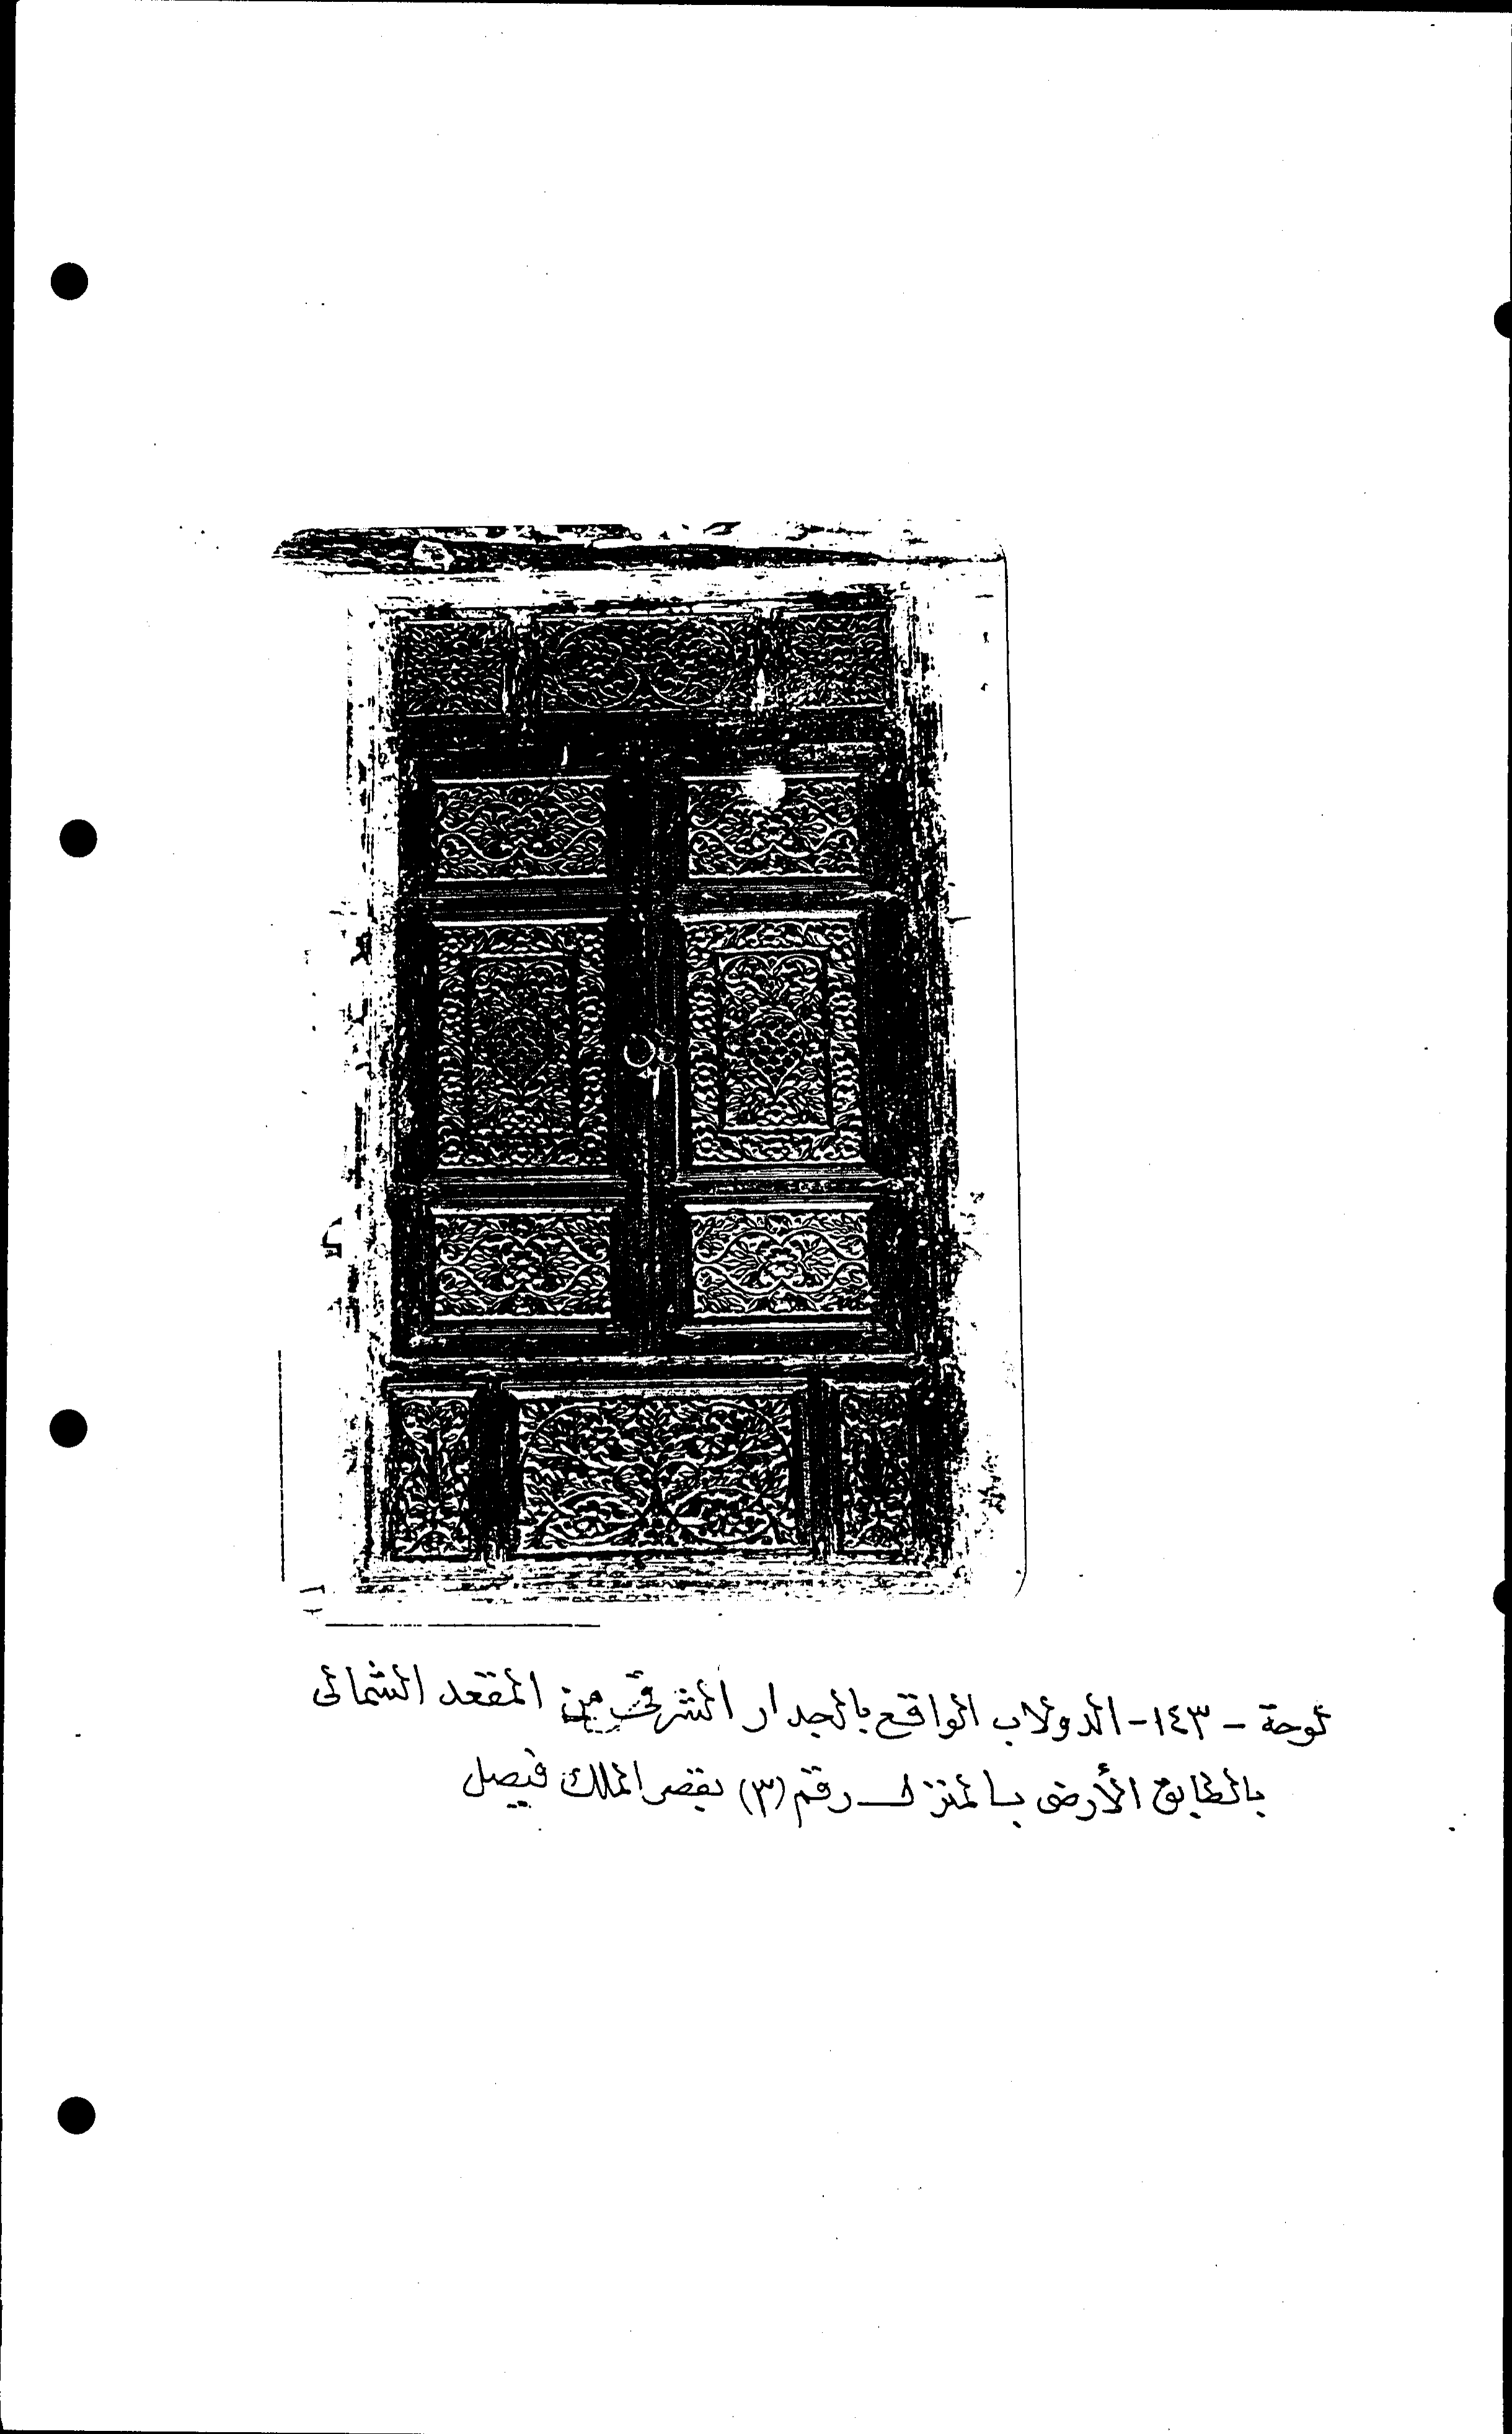 لوحة - ١٤٣- الدولاب الواقع بالجدار الشرقى من المقعد الشمالى
بالطابق الأرضى بالمنزل رقم (٣) بقصر الملك فيصل